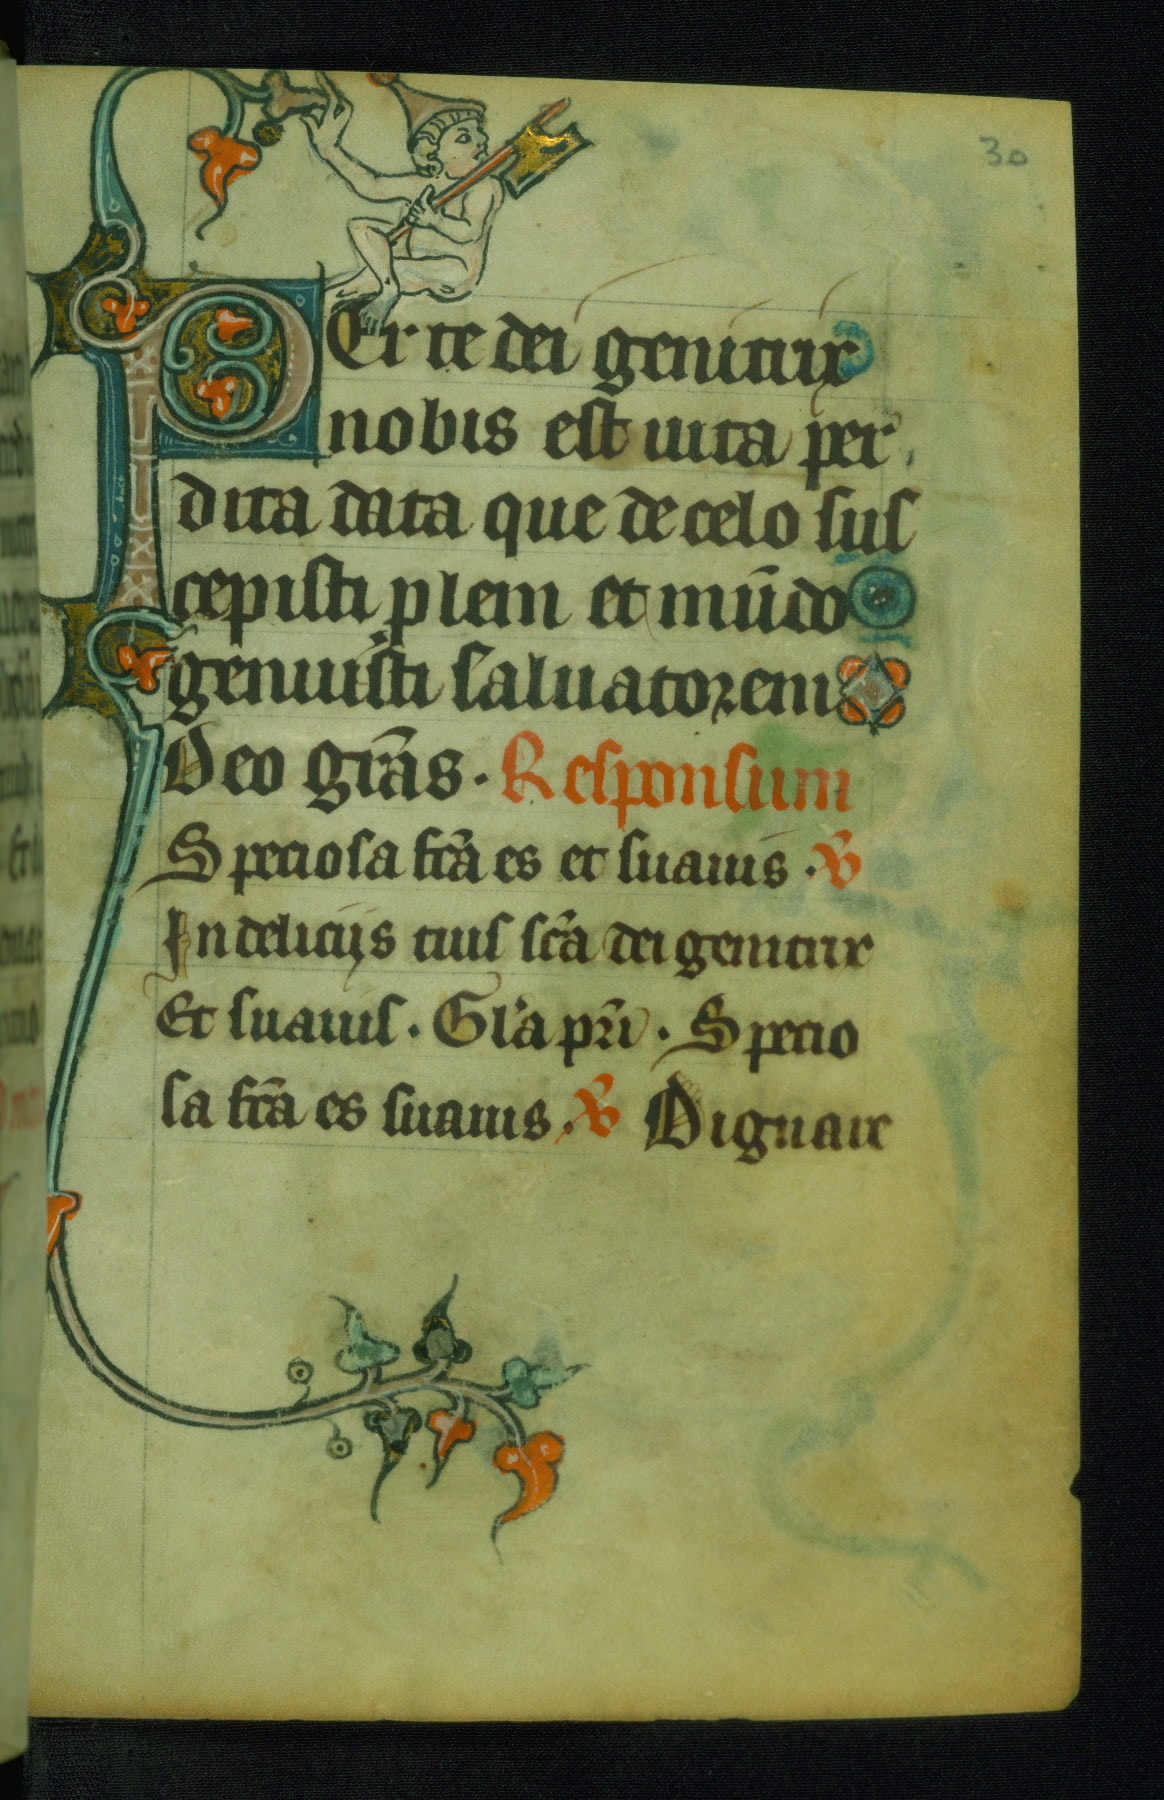 30
PEr te dei genitrix
nobis est uita per
dita data que de celo sus
cepisti p lem et mūdo
genuisti saluatorem
Deo grās. Responsum
Speciosa fcā es et suauis. V̄
In delicijs tuis scā dei genitrix
Et suauis. Glā pri. Specio
sa fcā es suauis. V̄ Dignare